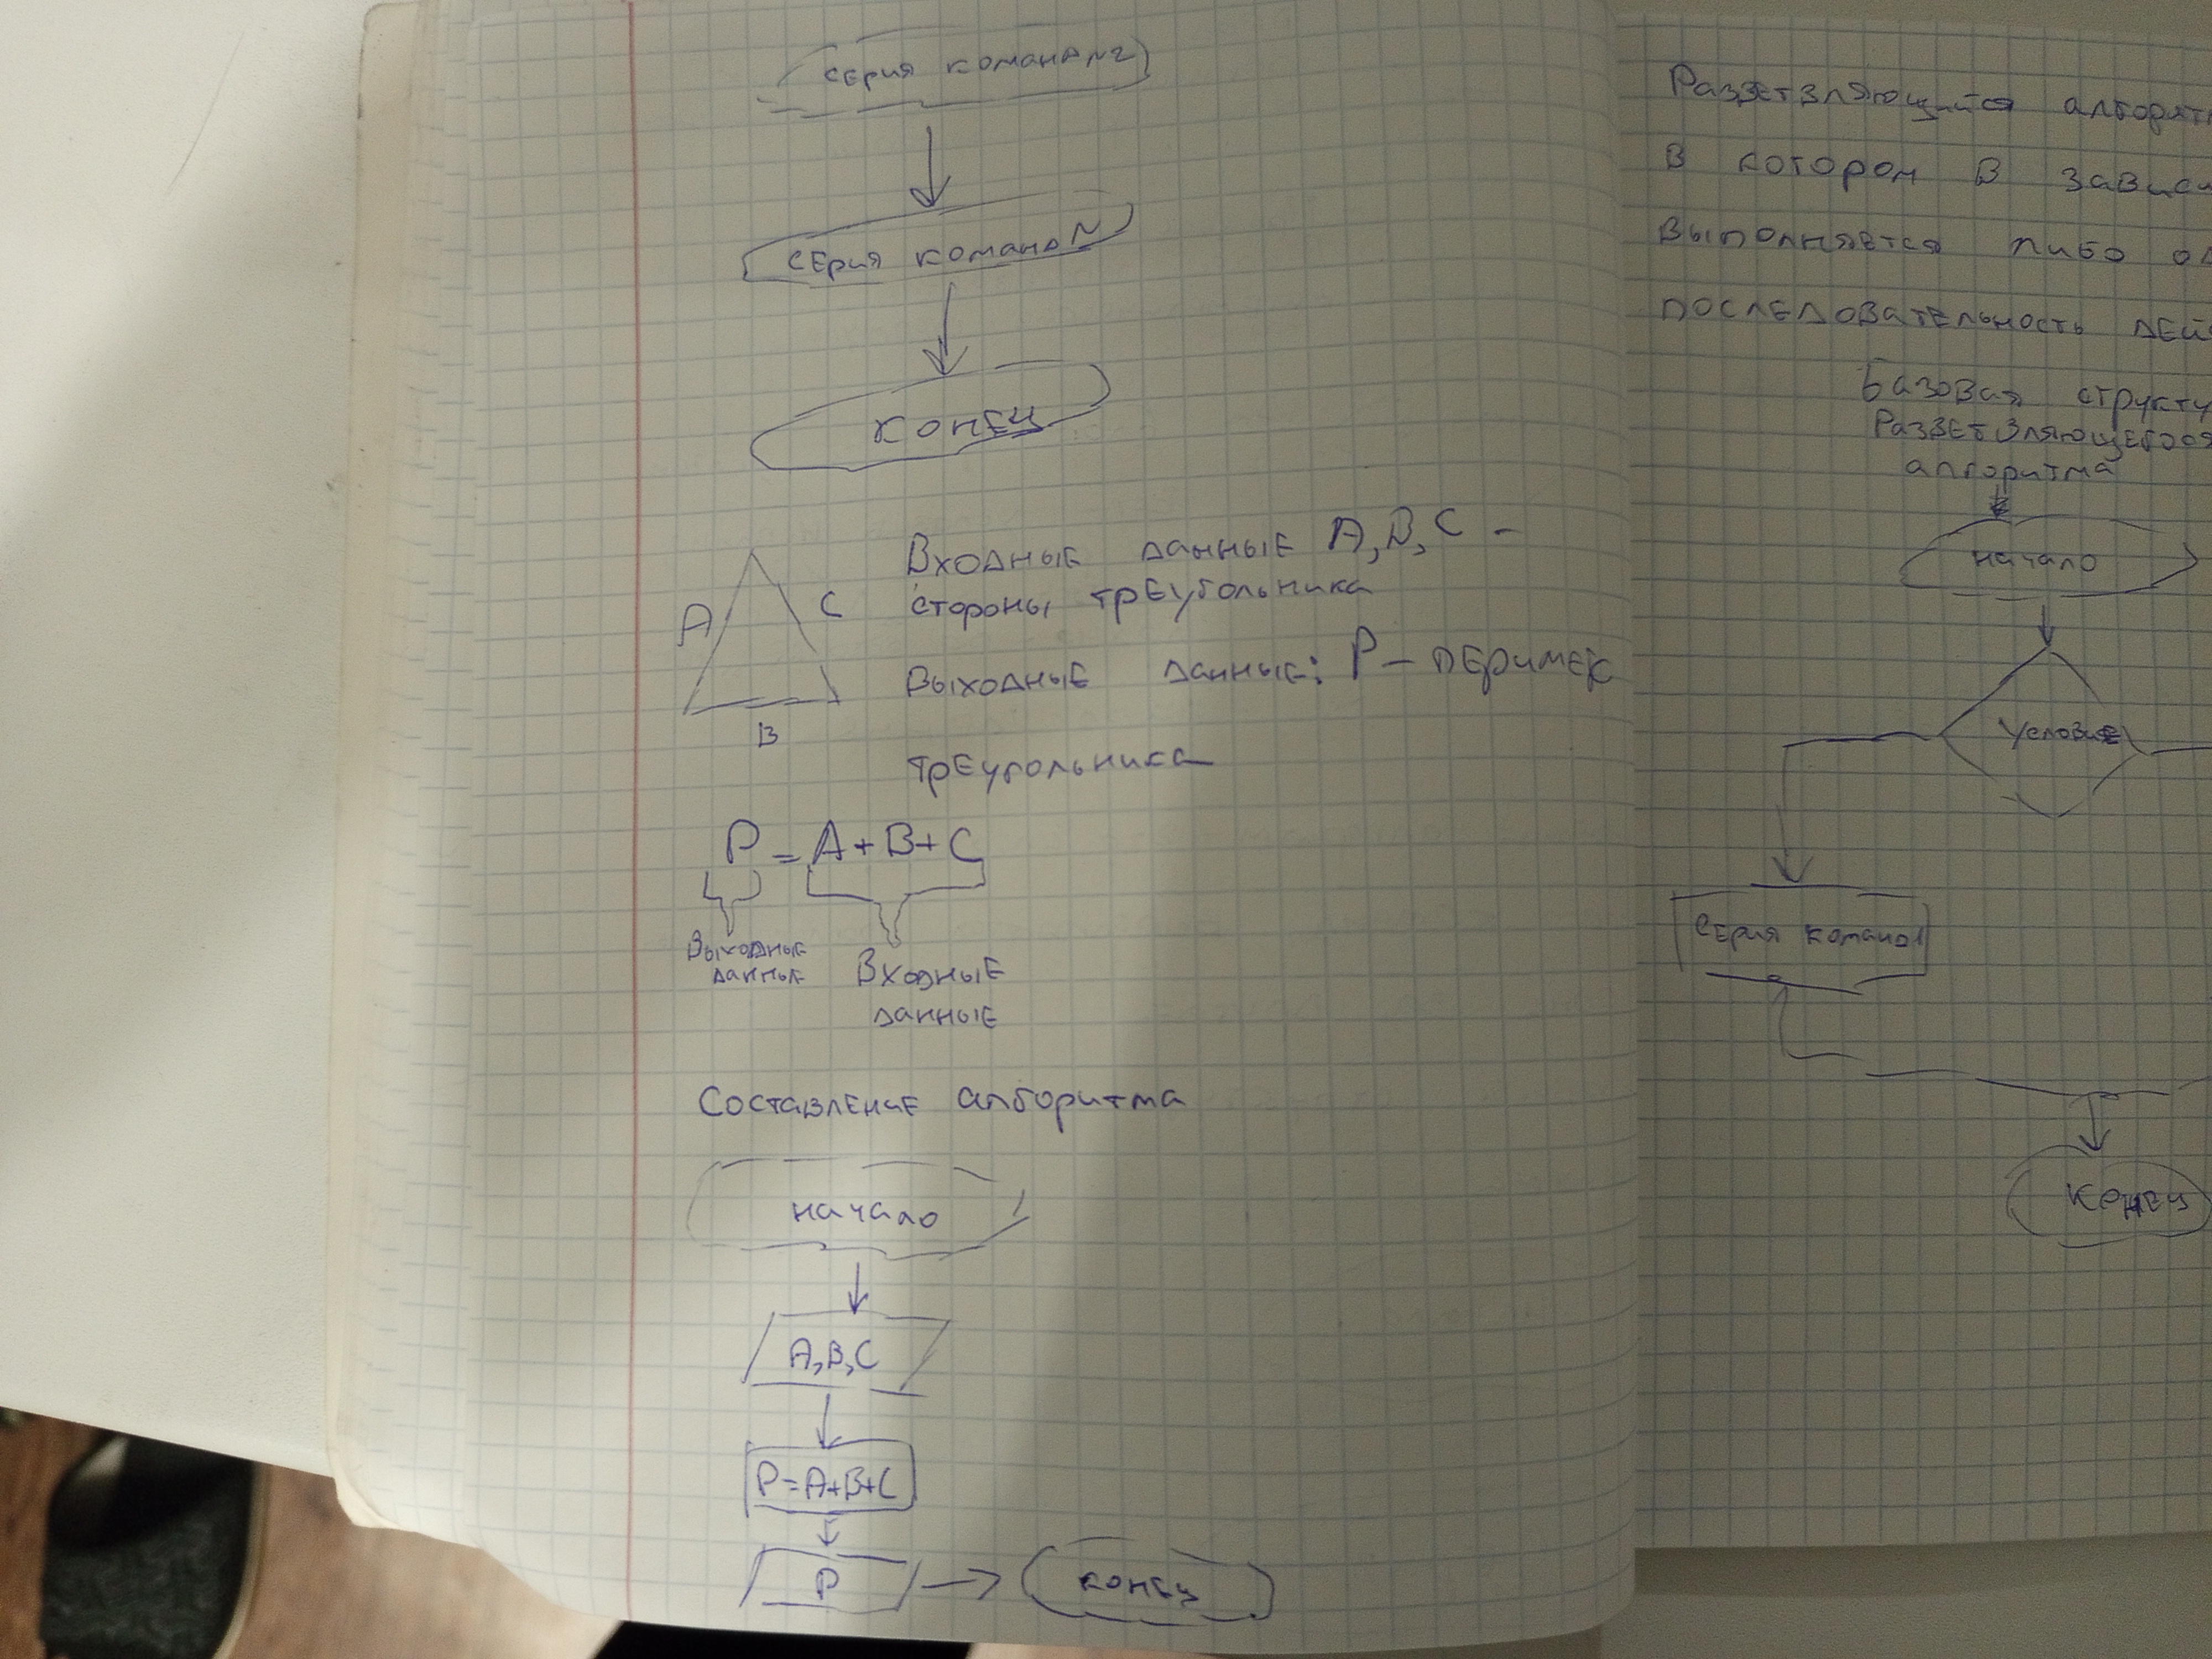 серия команд №2
серия команд N
конец
Входные данные A, B, C –
стороны треугольника
A
C
B
Выходные данные: P –
треугольника
P = A + B + C
Выходные
данные
Входные
данные
Составление алгоритма
начало
A, B, C
P = A+B+C
P
конец
Разветвляющийся
в котором в
выполняется либо
последовательность
Базовая
Разветвляющегося
алгоритма
начало
Условие
серия команд 1
конец